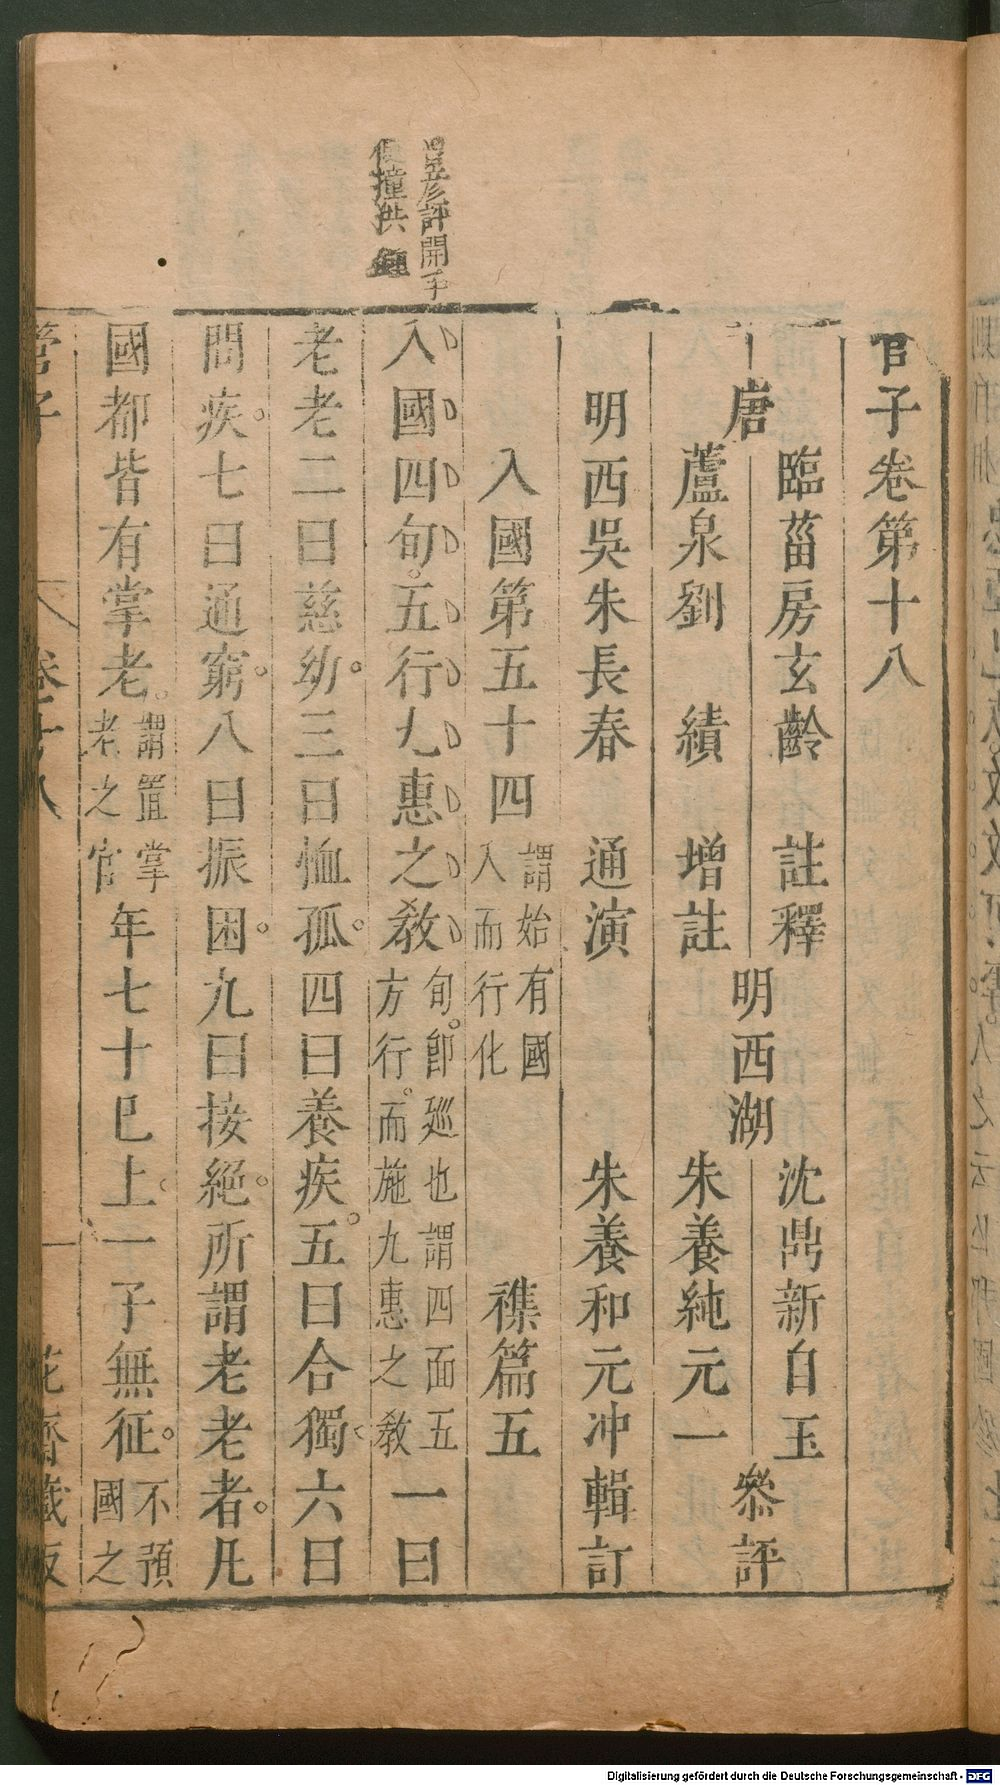 管子卷第十八
唐
臨菑房玄齡 註釋
蘆泉劉 績 增註
明西湖
沈鼎新自玉
朱養純元一
叅評
明西吳朱長春 通演 朱養和元冲輯訂
入國第五十四 謂始有國入而行化 襍篇五
評開手便撞洪鐘
入國四旬五行九惠之教 旬即廵也謂四面五方行而施九惠之教 一曰
老老二曰慈幼三曰恤孤四曰養疾五曰合獨六曰
問疾七曰通窮八曰振困九曰接絕所謂老老者凡
國都皆有掌老 謂置掌老之官 年七十已上一子無征 不預國之
管子 卷十八 一 花齋藏板
Digitalisierung gefördert durch die Deutsche Forschungsgemeinschaft - DFG